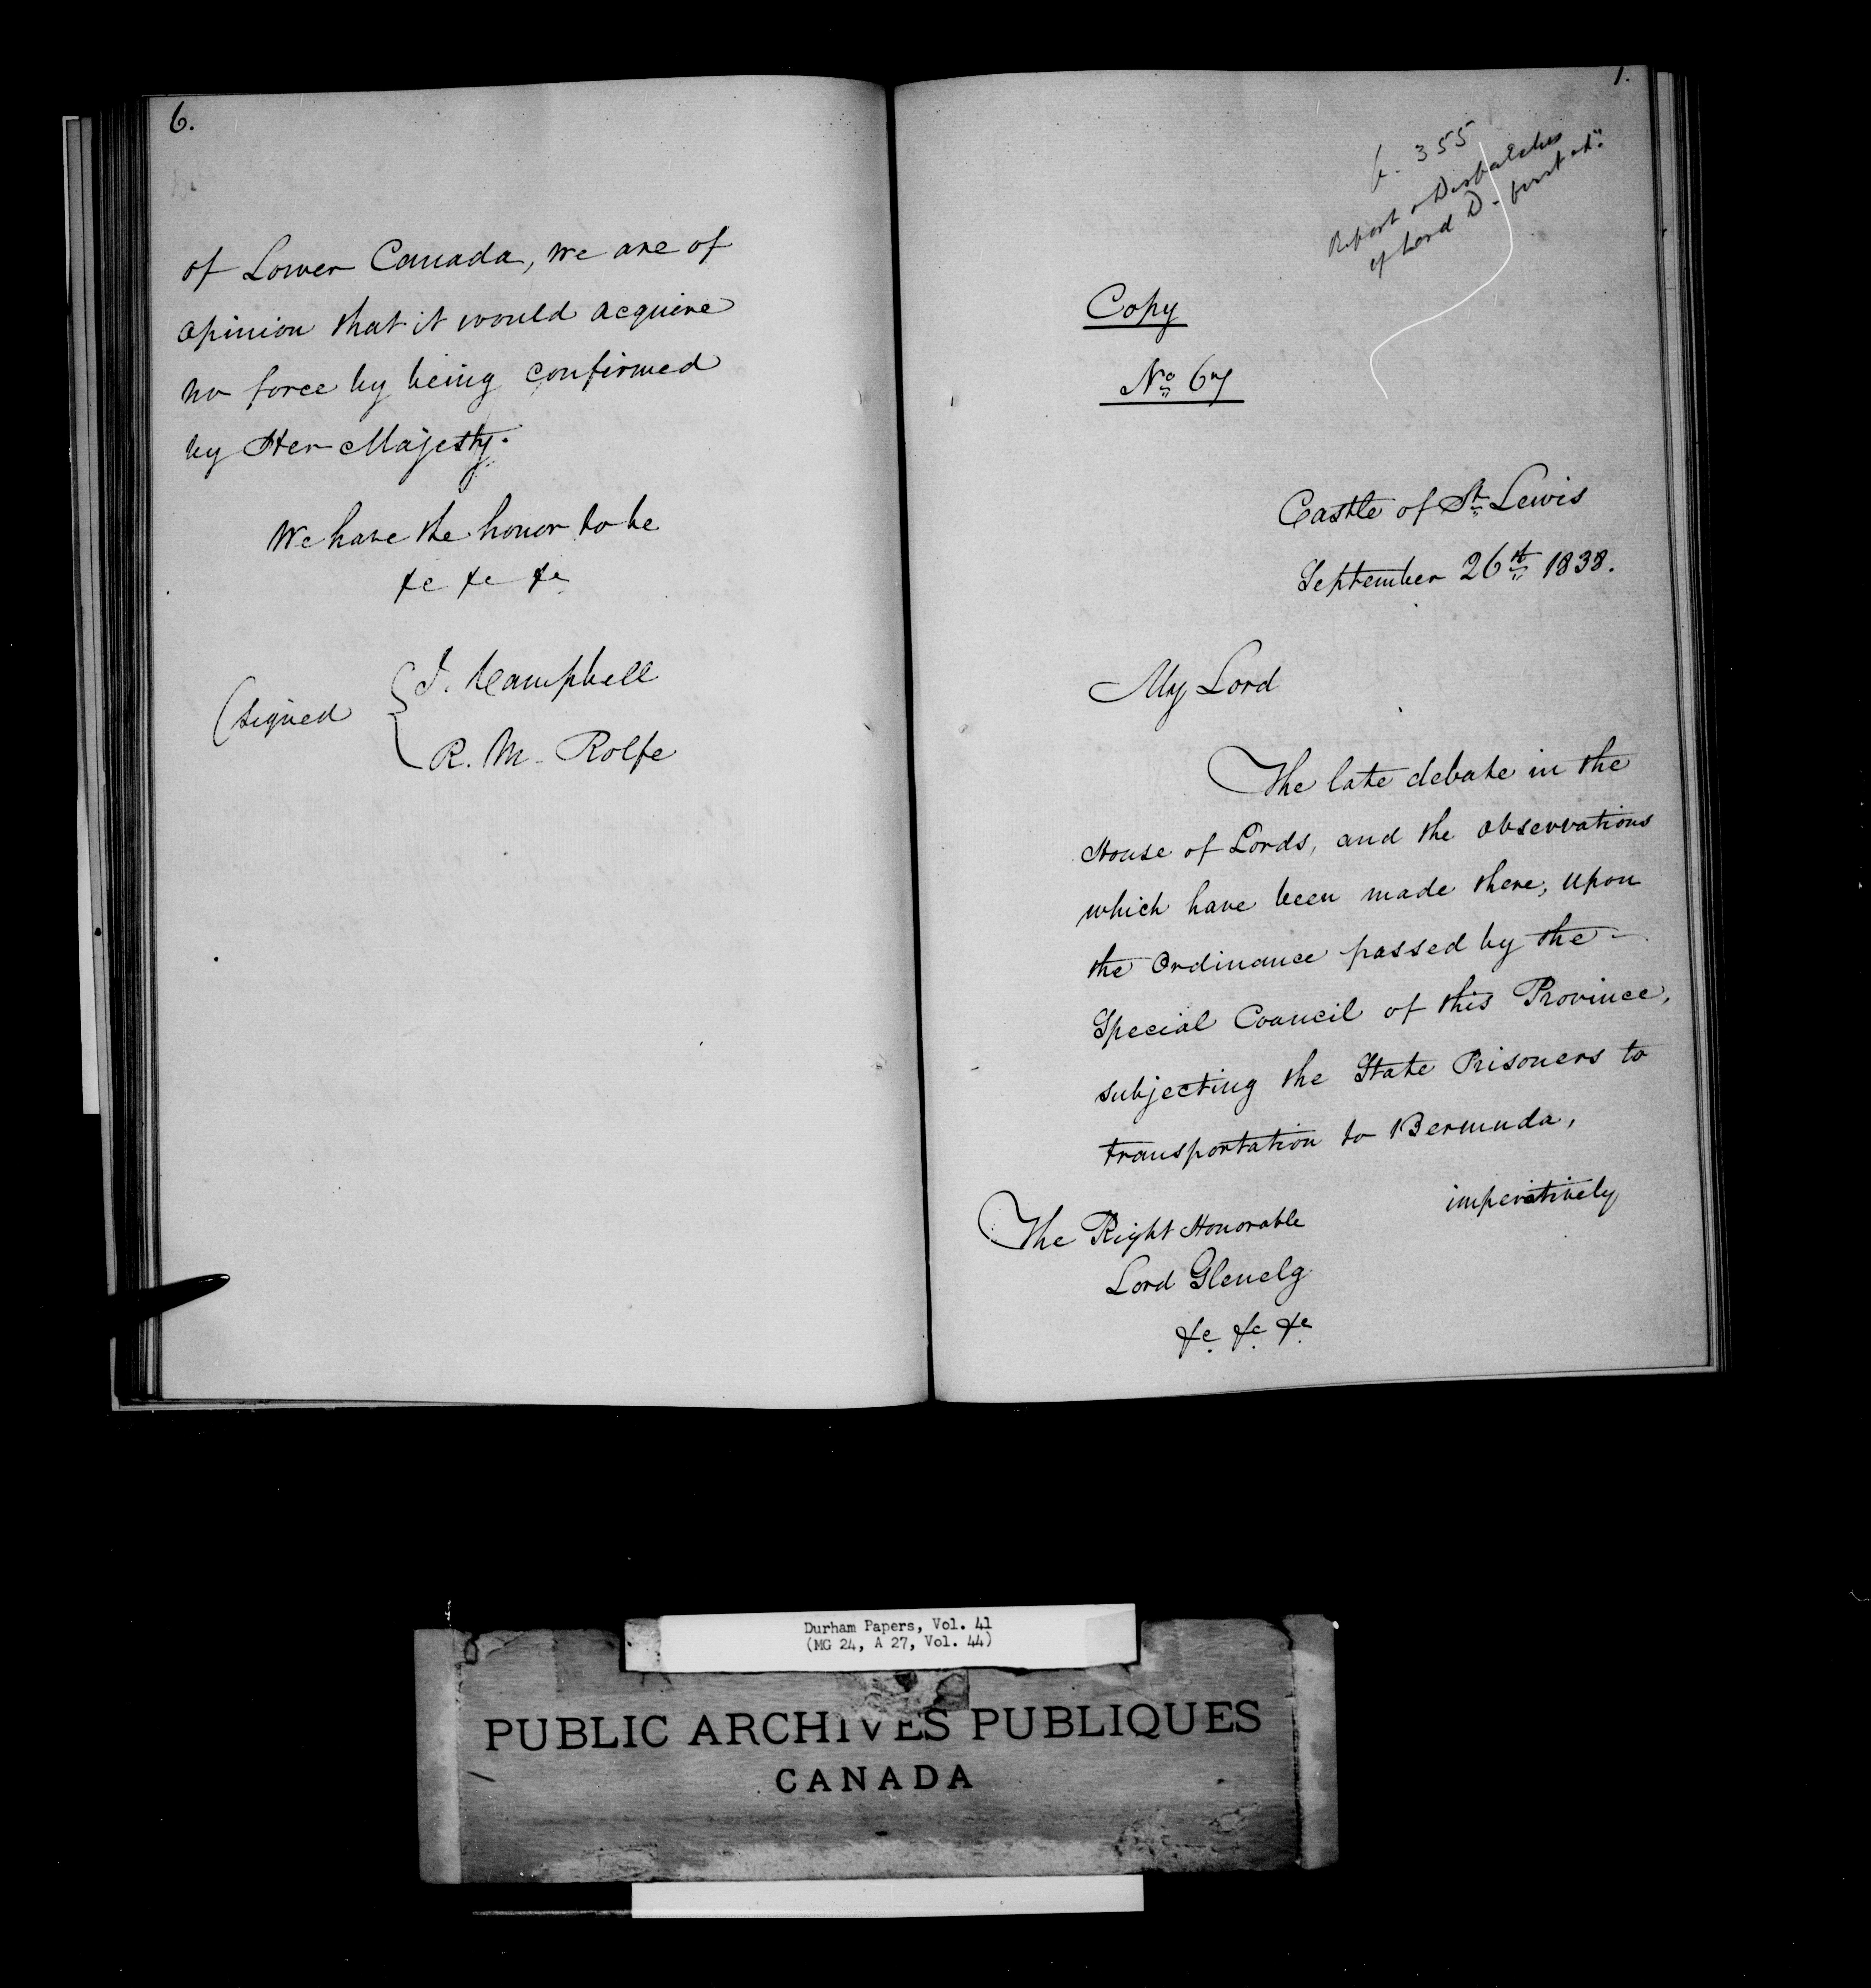 6.
of Lower Canada, we are of
opinion that it would acquire
no force by being confirmed
by Her Majesty.
We have the honor to be
&c &c &c
(signed { J. Campbell
R. M. Rolfe
1.
p. 355
Report & Despatches
of Lord D - first ed.
Copy
No 67
Castle of St Lewis
September 26th 1838.
My Lord
The late debate in the
House of Lords, and the observations
which have been made there, upon
the Ordinance passed by the
Special Council of this Province,
subjecting the State Prisoners to
transportation to Bermuda,
imperatively
The Right Honorable
Lord Glenelg
&c. &c. &c.
Durham Papers, Vol. 41
(MG 24, A 27, Vol. 44)
PUBLIC ARCHIVES PUBLIQUES
CANADA